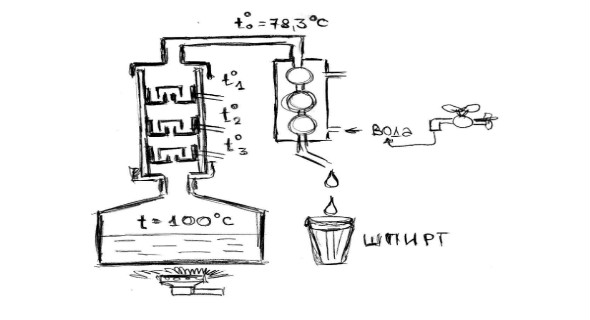 t°₀=78,3°C
t°₁
t°₂
t°₃
вода
t=100°C
ШПИРТ